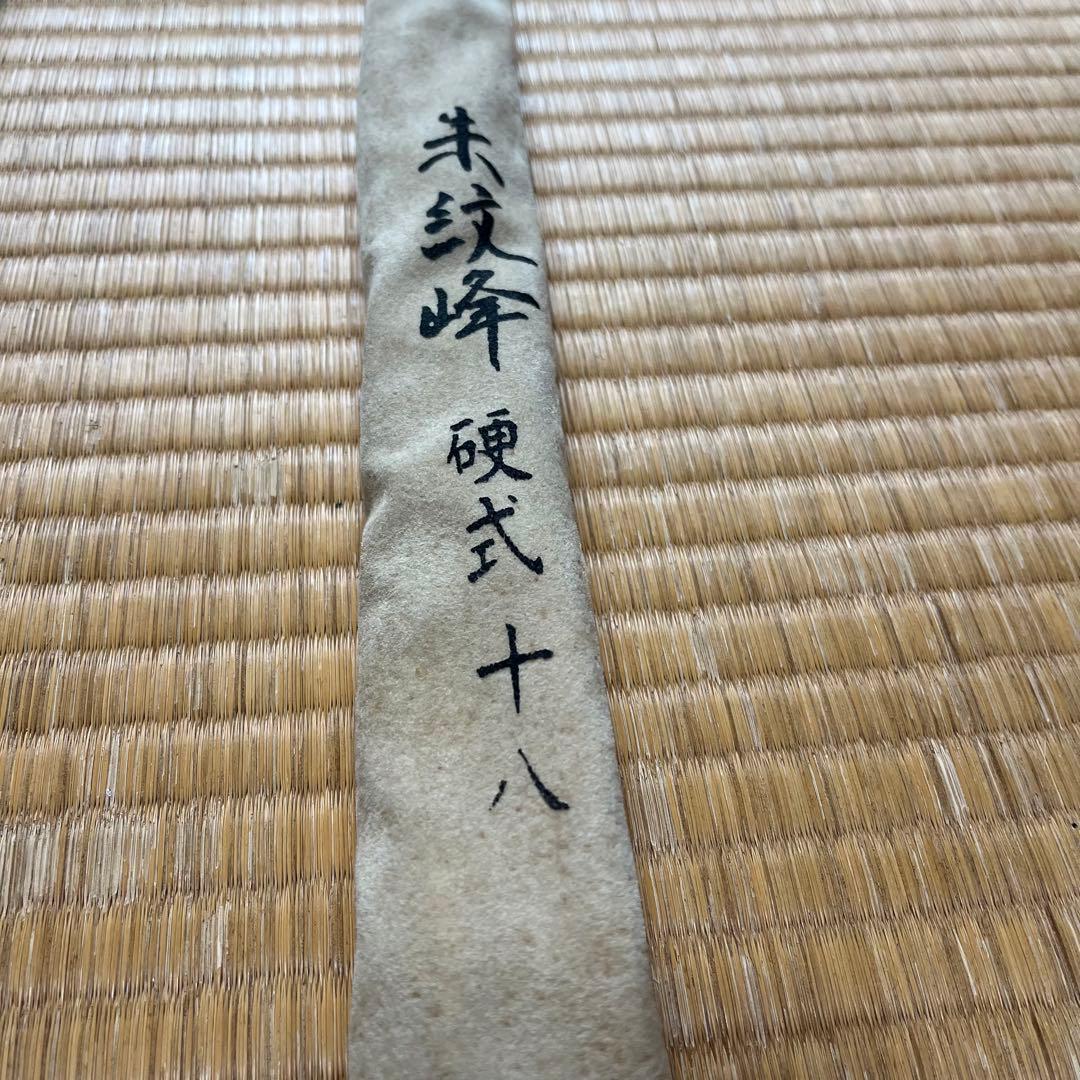 朱紋峰 硬式 十八